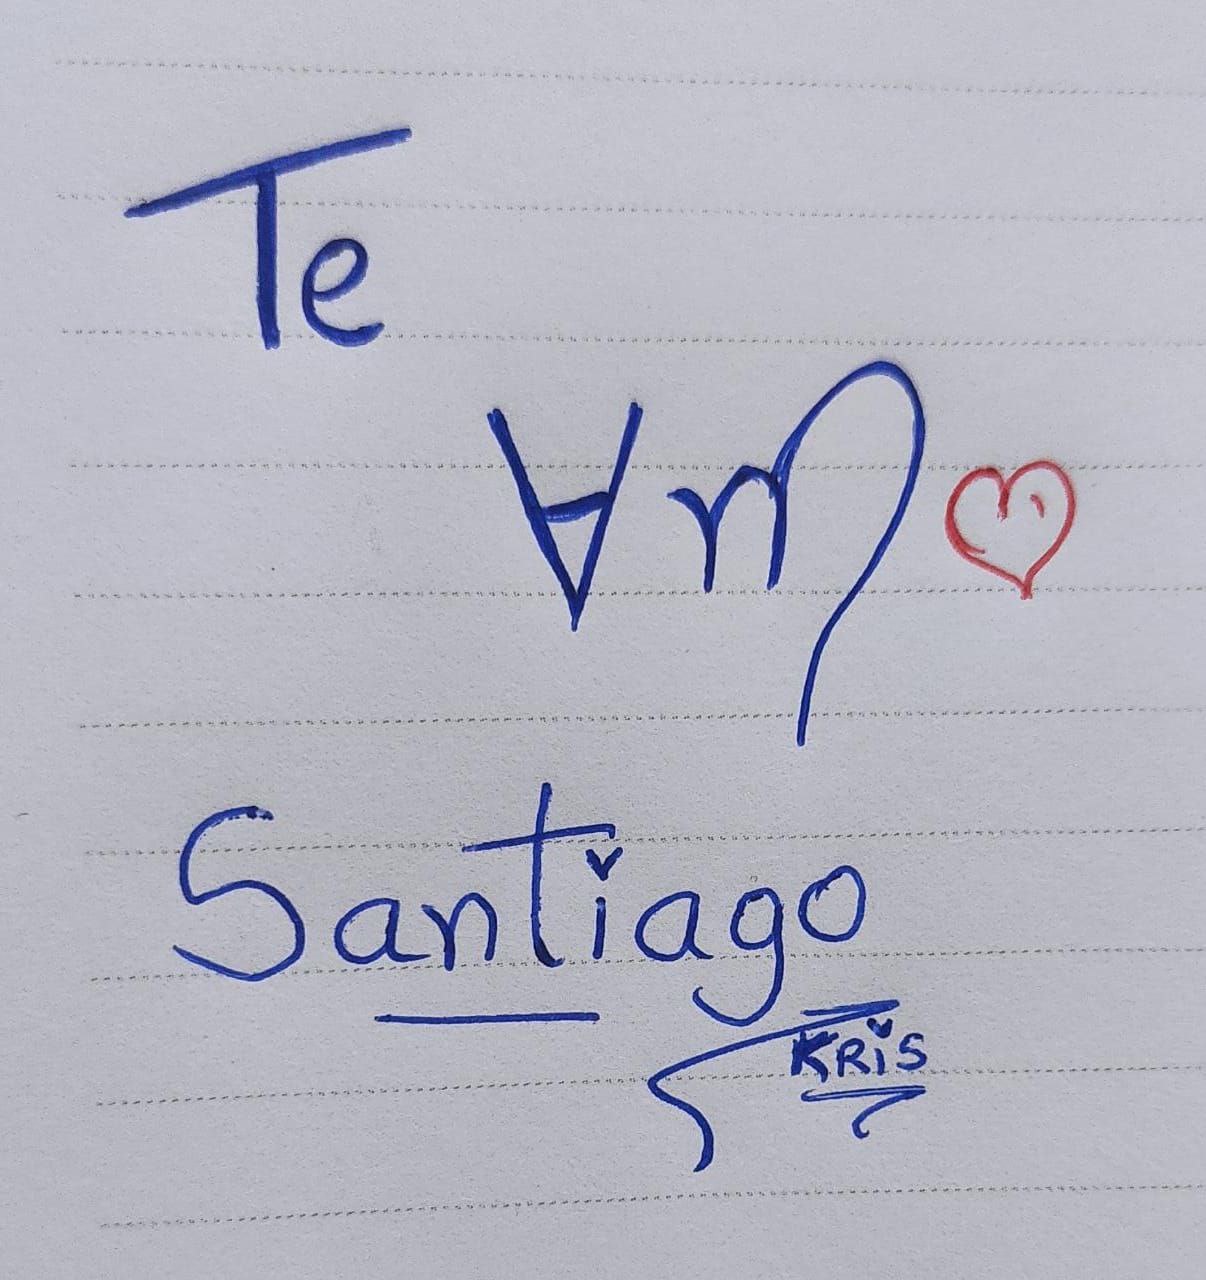 Te
∀m♡
Santiago
KRiS